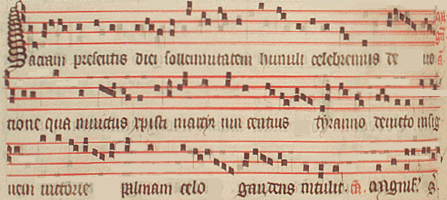 Sacram presentis diei sollennitatem humili celebremus de uo
cione qua inuictus xpisti martyr uin centius tyranno deuicto insig
nem uictorie palmam celo gaudens intulit. magnif.